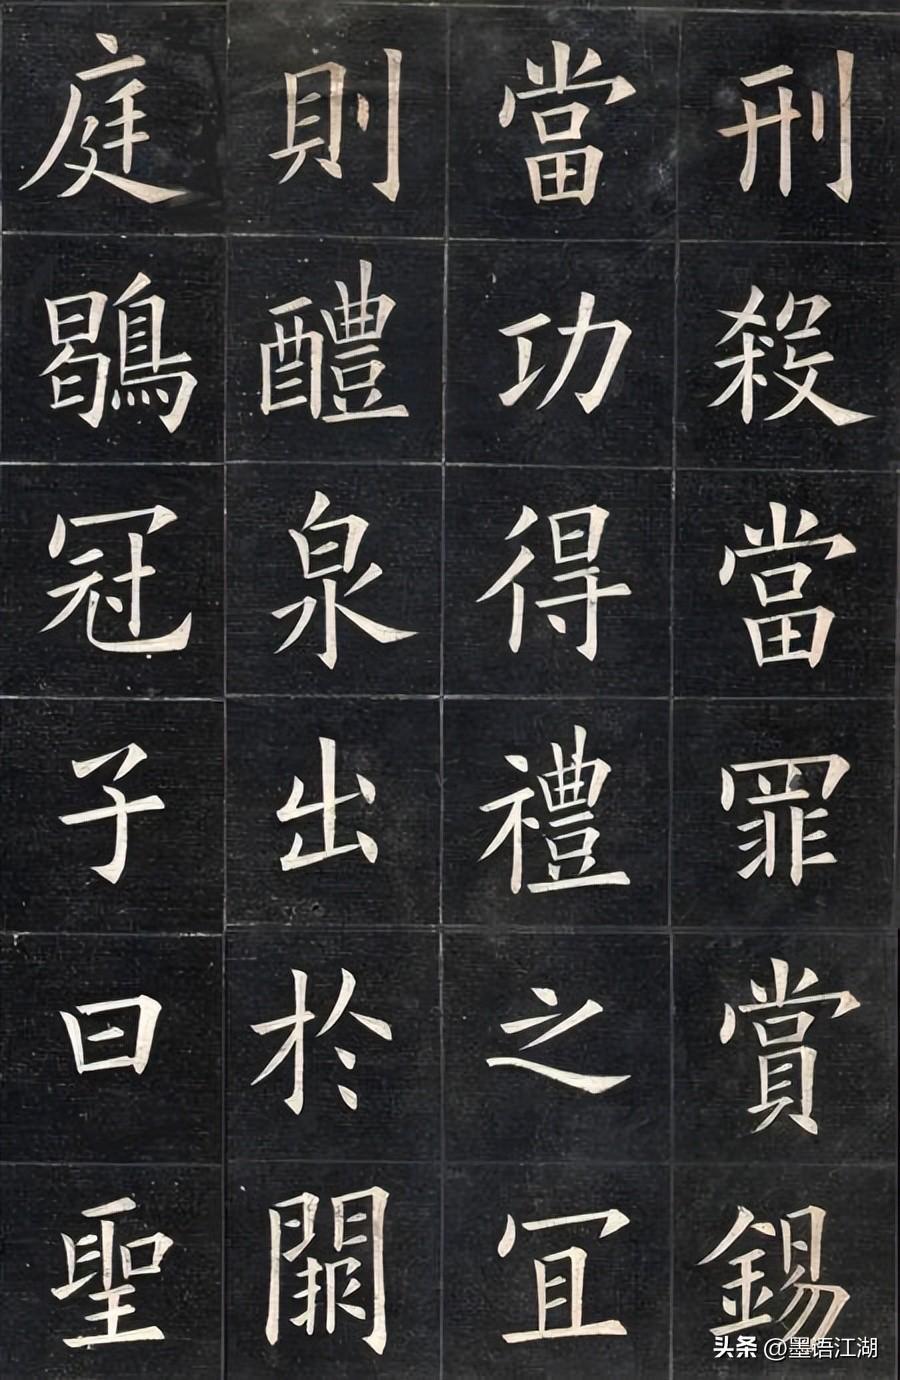 刑殺當罪賞錫
當功得禮之宜
則醴泉出於闕
庭鶡冠子曰聖
头条 @墨语江湖